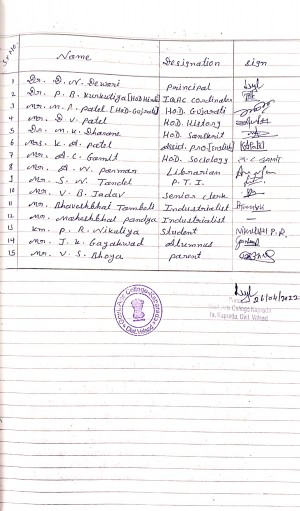 Sr. No Name Designation sign
1 Dr. D. N. Dewari principal
2 Dr. P. B. Kurkutiya [HoD Hindi] IQAC cordinator
3 Mr. M. R. patel [HoD-Gujrati] HoD. Gujarati
4 Mr. D. V. patel HoD. History
5 Dr. M. K. Dharane HoD. Sanskrit
6 Mrs. K. A. patel Assist. pro. [English]
7 Mr. A. C. Gamit HoD. Sociology A. C. GAMIT
8 Mr. A. W. Parmar Librarian
9 Mr. S. W. Tandel P. T. I.
10 Mr. V. B. Jadav senior clerk
11 Mr. Bhaveshbhai Tamboli Industrialist
12 Mr. Maheshbhai pandya Industrialist —
13 Km. P. R. Nikuliya Student Nikuliya P. R.
14 Mr. J. K. Gayakwad Alumnus
15 Mr. V. S. Bhoya parent
26/04/2022
Arts College Kaprada
Ta. Kaprada, Dist. Valsad